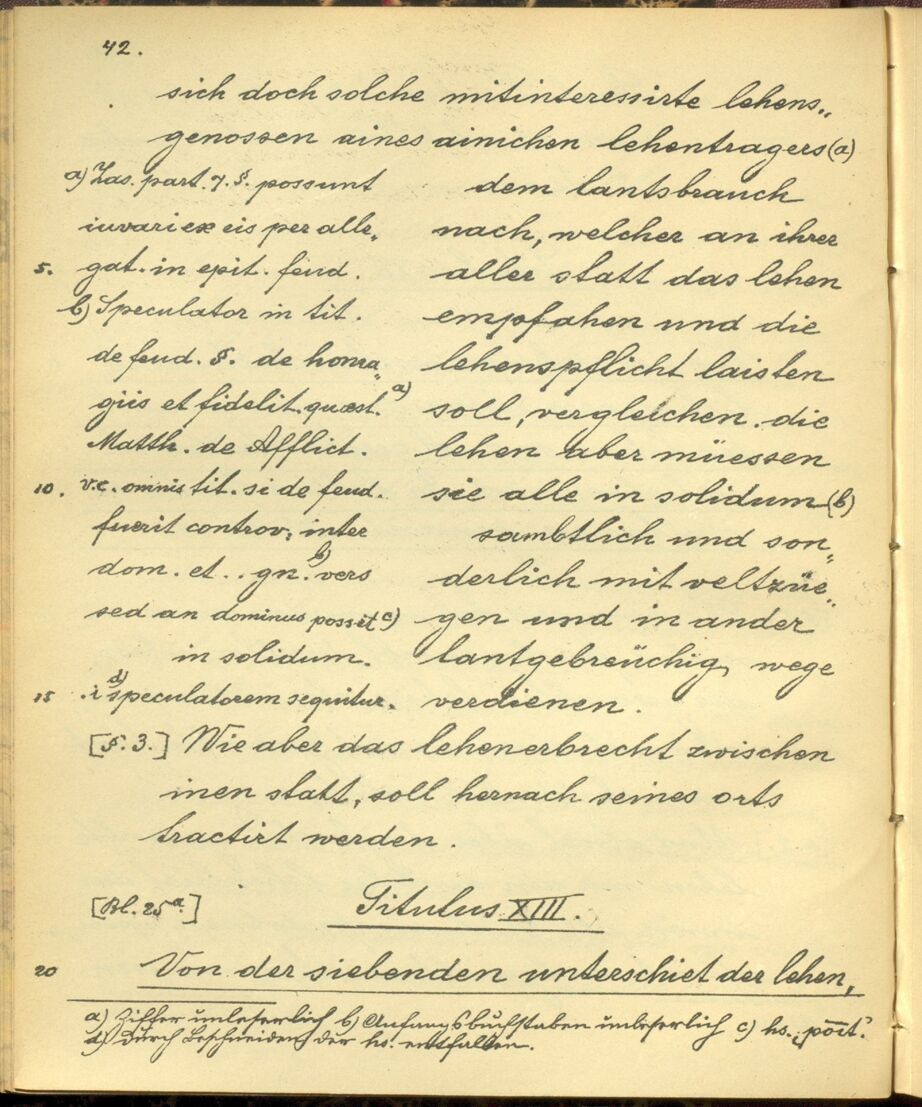 42.
sich doch solche mitinteressirte lehens„
genossen aines ainichen lehentragers (a)
a) Zas. part. 7. §. possunt
dem lantsbrauch
iuvari ex eis per alle„
nach, welcher an ihrer
5. gat. in epit. feud.
aller statt das lehen
b) Speculator in tit.
empfahen und die
de feud. §. de homa„
lehenspflicht laisten
giis et fidelit. quæst. a)
soll, vergleichen. die
Matth. de Afflict.
lehen aber müessen
10. v.c. omnis tit. si de feud.
sie alle in solidum (b)
fuerit controv, inter
sambtlich und son„
dom. et . . gn. b) vers
derlich mit veltzüe„
sed an dominus posset c)
gen und in ander
in solidum.
lantgebreüchig, wege
15 . i d) speculatorem sequitur.
verdienen.
[§. 3.] Wie aber das lehenerbrecht zwischen
inen statt, soll hernach seines orts
tractirt werden.
[Bl. 25a.] Titulus XIII.
20 Von der siebenden unterschiet der lehen,
a) Ziffer unleserlich b) Anfangsbuchstaben unleserlich c) hs. poīt.
d) Durch Beschneiden der hs. entfallen.